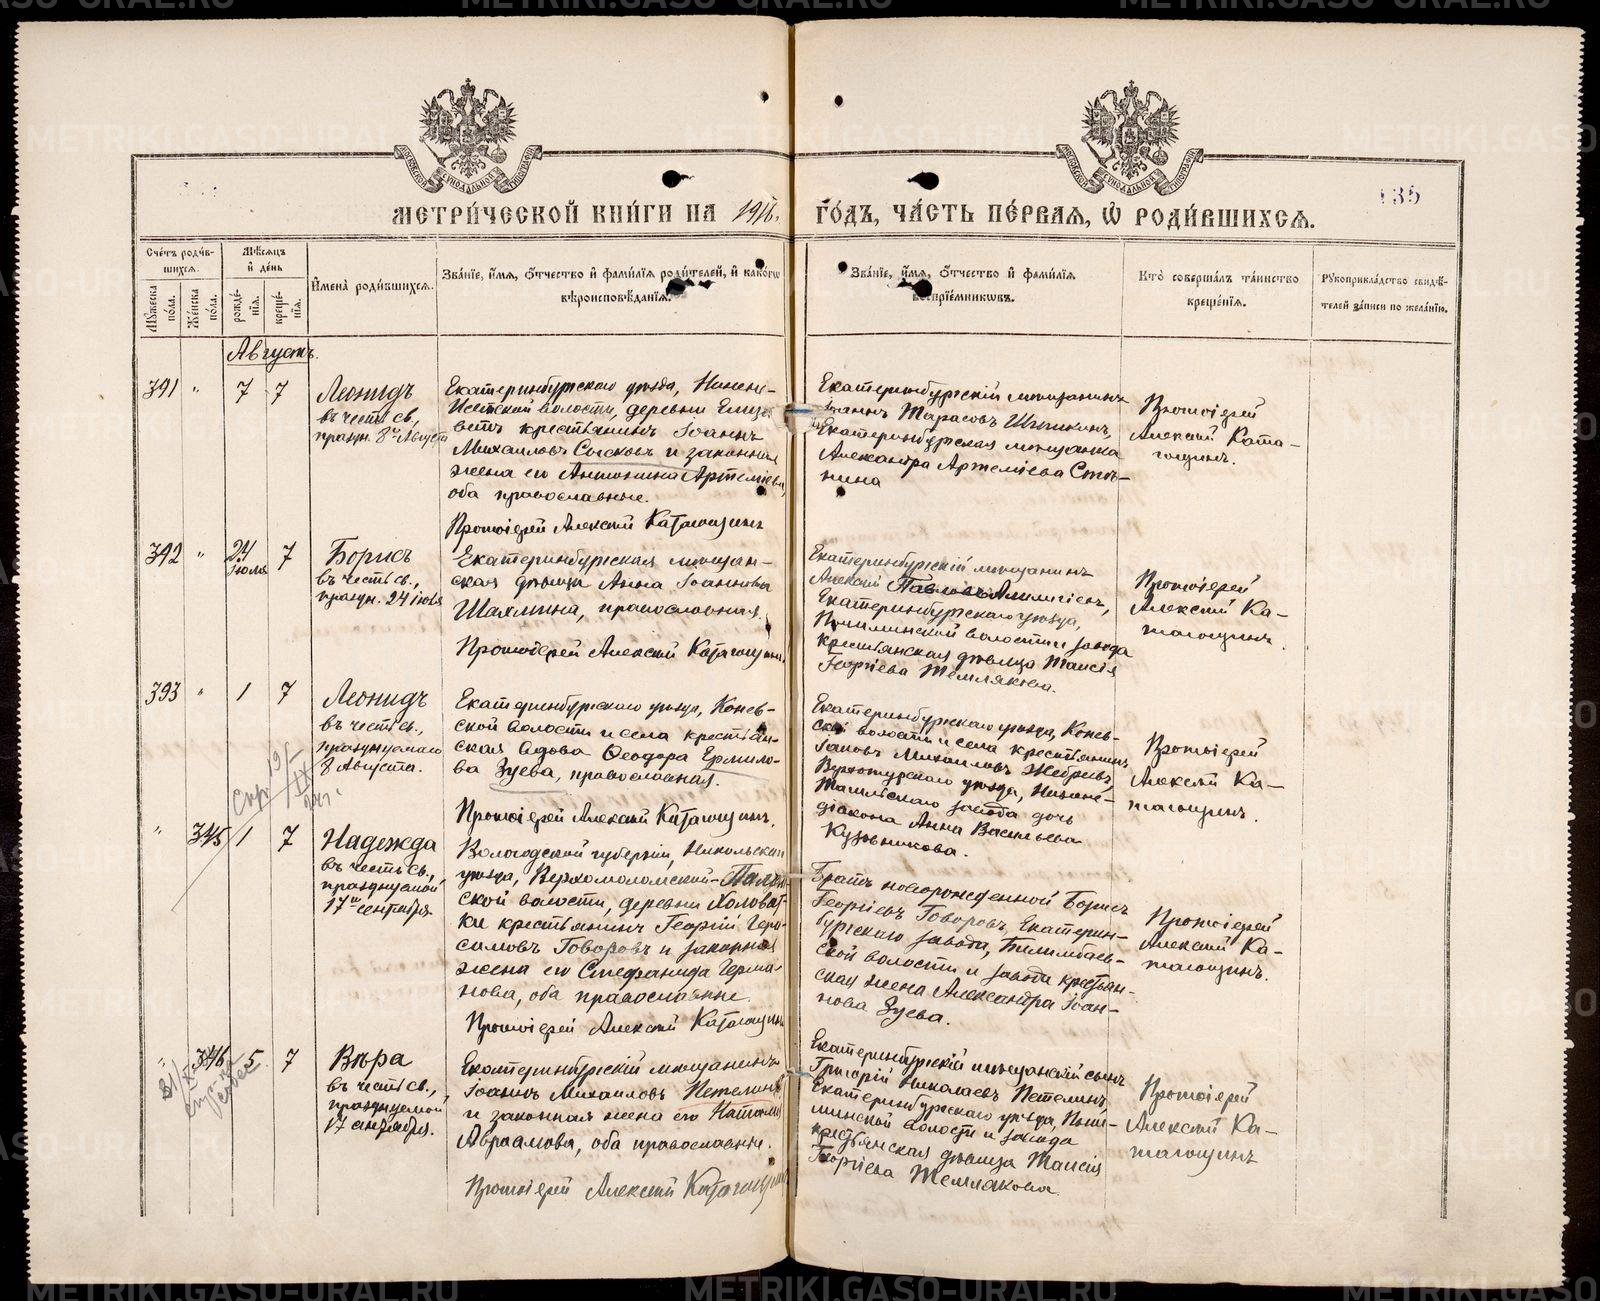 МЕТРИ́ЧЕСКОЙ КНИ́ГИ НА 1916 г.
ГО́ДЪ, ЧА́СТЬ ПЕ́РВАЯ, Ѡ РОДИ́ВШИХСЯ.
135
Счетъ роди́в-
шихся.
Мѣсяцъ
и́ де́нь
Мꙋжеска по́ла.
Же́нска по́ла.
рожде́-
нія.
креще́-
нія.
И́мена̀ роди́вшихся.
Зва́нїе, и́мя, о́тчество и́ фами́лїя роди́телей, и́ како́гѡ
вѣроисповѣ́данїя.
Зва́нїе, и́мя, о́тчество и́ фами́лїя
воспрїе́мниковъ.
Кто̀ соверша́лъ та́инство
креще́нїя.
Рꙋкоприкла́дство свидѣ́-
телей за́писи по жела́нїю.
Августъ.
391 " 7 7
Леонидъ
въ честь св.,
праздн. 8го Августа
Екатеринбургскаго уѣзда, Нижне-
Исетской волости, деревни Елиза-
ветъ крестьянинъ Іоаннъ
Михаиловъ Сысковъ и законная
жена его Антонина Артеміева,
оба православные.
Протоіерей Алексій Катагощинъ
Екатеринбургскій мѣщанинъ
Іоаннъ Тарасовъ Шишкинъ,
Екатеринбургская мѣщанка
Александра Артеміева Стѣ-
нина
Протоіерей
Алексій Ката-
гощинъ.
392 " 24 Іюля 7
Борисъ
въ честь св.,
праздн. 24 іюля
Екатеринбургская мѣщан-
ская дѣвица Анна Іоаннова
Шахмина, православная.
Протоіерей Алексій Катагощинъ.
Екатеринбургскій мѣщанинъ
Алексій Павловъ
Екатеринбургскаго уѣзда,
волости и завода
крестьянская дѣвица Таисія
Георгіева Темлякова.
Протоіерей
Алексій Ка-
тагощинъ
393 " 1 7
Леонидъ
въ честь св.,
празднуемаго
8 Августа.
Екатеринбургскаго уѣзда, Конев-
ской волости и села крестьян-
ская вдова Ѳеодора Ермило-
ва Зуева, православная.
Протоіерей Алексій Катагощинъ.
Екатеринбургскаго уѣзда, Конев-
ской волости и села крестьянинъ
Іаковъ Михаиловъ Жебревъ,
Верхотурскаго уѣзда, Нижне-
Тагильскаго завода дочь
діакона Анна Васильева
Кузовникова.
Протоіерей
Алексій Ка-
тагощинъ.
" 345 1 7
Надежда
въ честь св.,
празднуемой
17го сентября.
Вологодской губерніи, Никольскаго
уѣзда, Верхомоломской
ской волости, деревни Холоват-
ки крестьянинъ Георгій Гера-
симовъ Говоровъ и законная
жена его Стефанида Герма-
нова, оба православные.
Протоіерей Алексій Катагощинъ
Братъ новорожденной Борисъ
Георгіевъ Говоровъ, Екатерин-
бургскаго завода, Билимбаев-
ской волости и завода крестьян-
ская жена Александра Іоан-
нова Зуева.
Протоіерей
Алексій Ка-
тагощинъ.
" 346 5 7
Вѣра
въ честь св.,
празднуемой
17 сентября.
Екатеринбургскій мѣщанинъ
Іоаннъ Михаиловъ Петелинъ
и законная жена его Наталія
Авраамова, оба православные.
Протоіерей Алексій Катагощинъ
Екатеринбургскій мѣщанскій сынъ
Григорій Николаевъ Петелинъ,
Екатеринбургскаго уѣзда,
волости и завода
крестьянская дѣвица Таисія
Георгіева Темлякова.
Протоіерей
Алексій Ка-
тагощинъ
METRIKI.GASO-URAL.RU